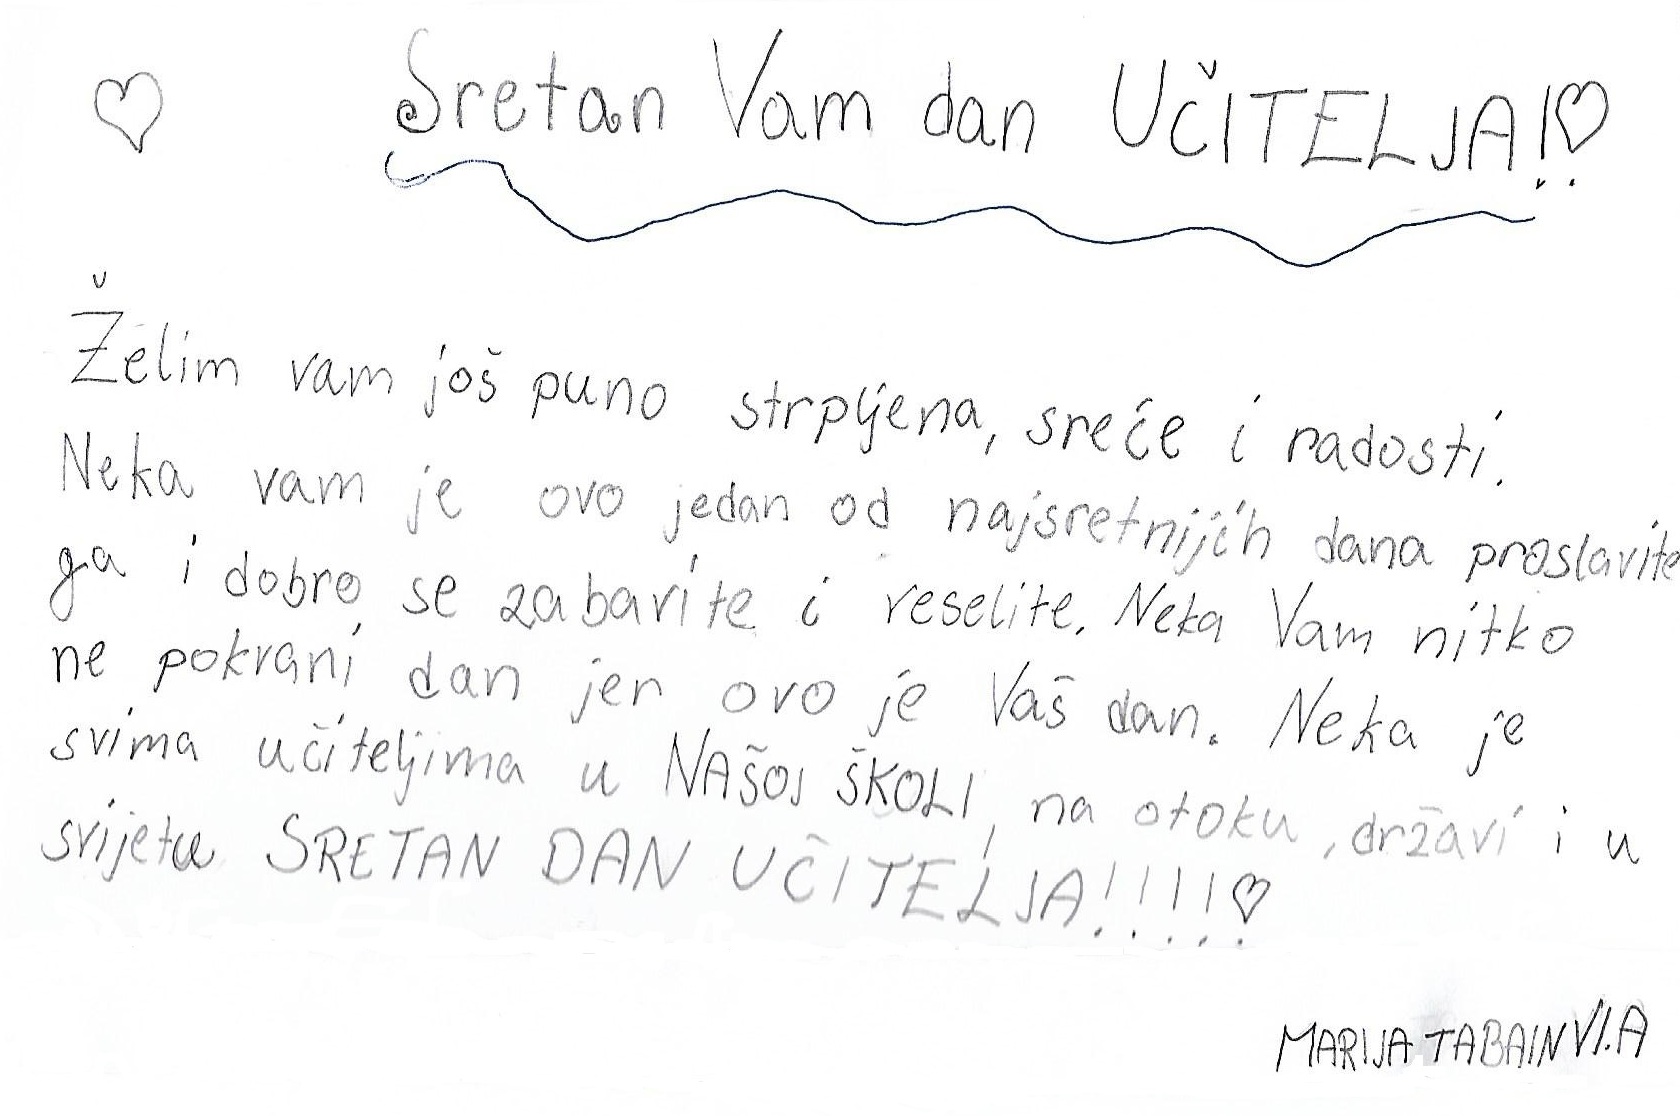 ♡ Sretan Vam dan UČITELJA!♡
Želim vam još puno strpljena, sreće i radosti.
Neka vam je ovo jedan od najsretnijih dana proslavite
ga i dobro se zabavite i veselite. Neka Vam nitko
ne pokrani dan jer ovo je Vaš dan. Neka je
svima učiteljima u NAŠOJ ŠKOLI, na otoku, državi i u
svijetu SRETAN DAN UČITELJA!!!!!♡
MARIJA TABAIN VI.A